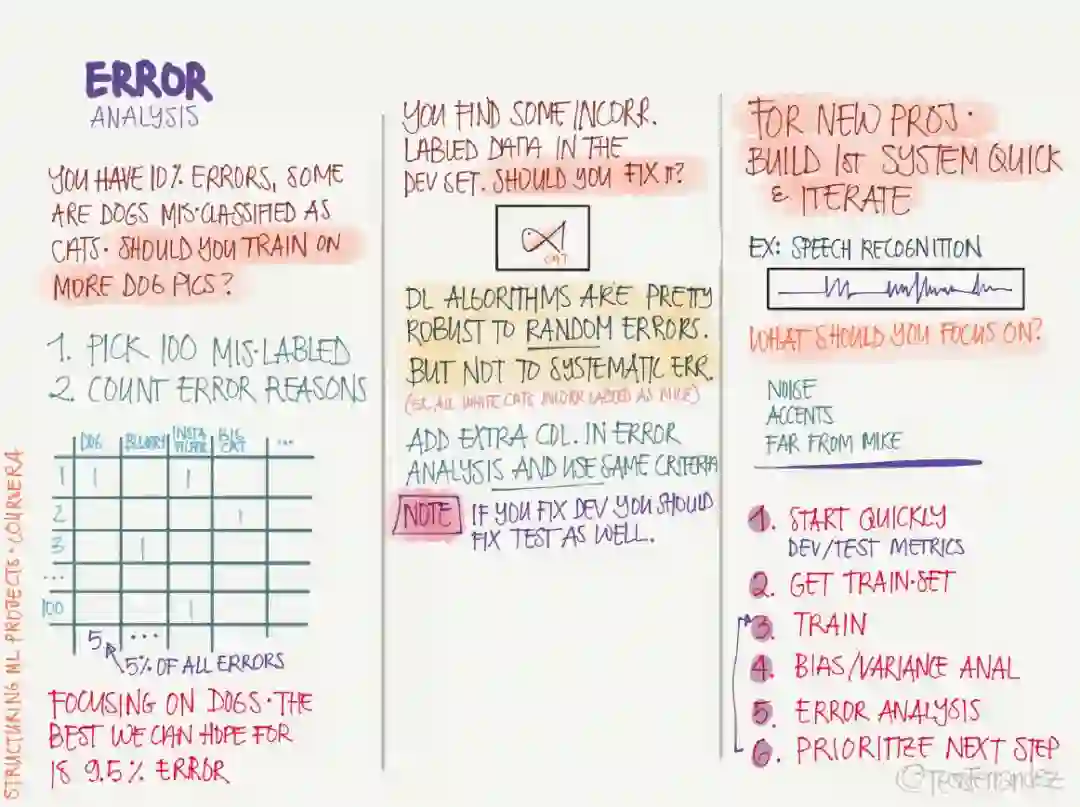 ERROR
ANALYSIS
YOU HAVE 10% ERRORS, SOME
ARE DOGS MIS·CLASSIFIED AS
CATS· SHOULD YOU TRAIN ON
MORE DOG PICS?
1. PICK 100 MIS·LABLED
2. COUNT ERROR REASONS
DOG BLURRY INSTA FILTER BIG CAT ...
1 1 1
2 1
3 1
...
100 1
5 ...
5% OF ALL ERRORS
FOCUSING ON DOGS· THE
BEST WE CAN HOPE FOR
IS 9.5% ERROR
STRUCTURING ML PROJECTS·COURSERA
YOU FIND SOME INCORR.
LABLED DATA IN THE
DEV SET. SHOULD YOU FIX IT?
CAT
DL ALGORITHMS ARE PRETTY
ROBUST TO RANDOM ERRORS.
BUT NOT TO SYSTEMATIC ERR.
(EX. ALL WHITE CATS INCORR LABLED AS MICE)
ADD EXTRA COL. IN ERROR
ANALYSIS AND USE SAME CRITERIA
NOTE IF YOU FIX DEV YOU SHOULD
FIX TEST AS WELL.
FOR NEW PROJ·
BUILD 1ST SYSTEM QUICK
& ITERATE
EX: SPEECH RECOGNITION
WHAT SHOULD YOU FOCUS ON?
NOISE
ACCENTS
FAR FROM MIKE
1. START QUICKLY
DEV/TEST METRICS
2. GET TRAIN·SET
3. TRAIN
4. BIAS/VARIANCE ANAL
5. ERROR ANALYSIS
6. PRIORITIZE NEXT STEP
©TessFerrandez